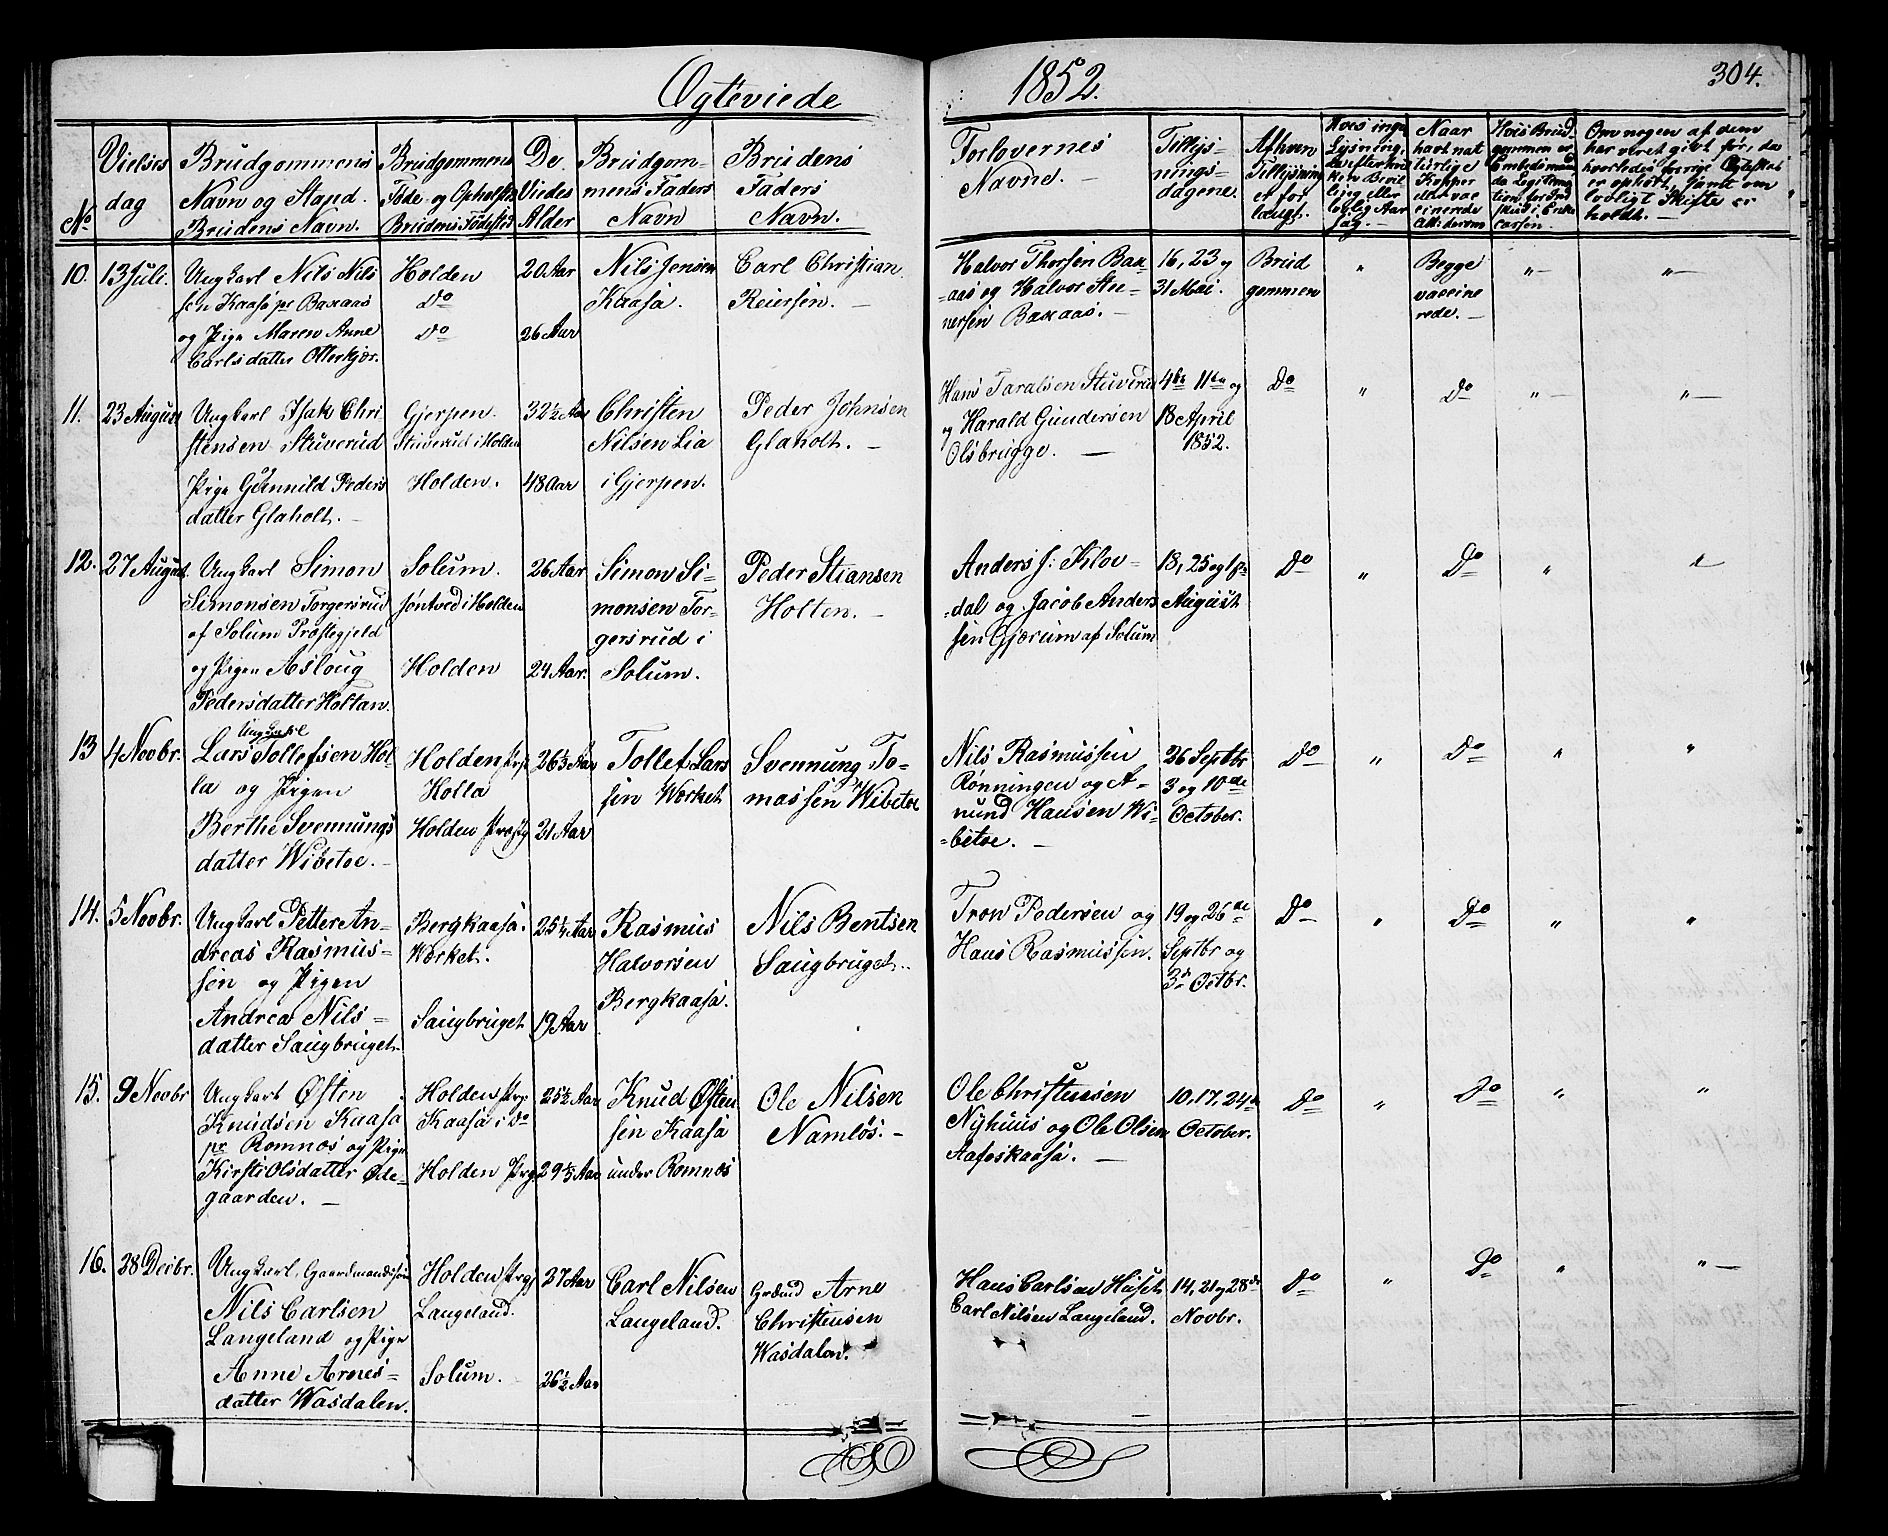 Ægteviede 1852. 304.
No
Vielses
dag
Brudgommens
Navn og Stand.
Brudens Navn.
Brudgommens
Føde- og Opholdst.
Brudens Fødested
De
Viedes
Alder
Brudgom-
mens Faders
Navn
Brudens
Faders
Navn.
Forlovernes
Navne. —
Tillys-
nings-
dagene.
Af hvem
Tillysning
er for
langt.
Hvis ingen
Lysning,
da efter hvil
ken Bevil
ling eller
lovlig Aar
sag. —
Naar
havt nat
urlige
Kopper
eller vac
cinerede
Att: derom
Hvis Brud-
gommen er
Embedsmand
da Legitima
tion for Ind
skud i Enke
cassen.
Om nogen af dem
har været givt før, da
hvorledes forrige Ægteskab
er ophørt, samt om
lovligt Skifte er
holdt. —
10. 13 Juli.
Ungkarl Nils Nils
sen Kaasa pr Baxaas
og Pige Maren Anne
Carlsdatter Otterkjær.
Holden
Do
Do
20 Aar
26 Aar
Nils Jensen
Kaasa.
Carl Christian
Reiersen. —
Halvor Thorsen Bax-
aas og Halvor Ste-
nersen Baxaas. —
16, 23 og
31 Mai.
Brud
gommen
"
Begge
vaccine
rede. —
"—
"—
11. 23 August
Ungkarl Isak Chri
stensen i Stuverud
Pige Gunnild Peders
datter Glaholt. —
Gjerpen.
Stuverud i Holden
Holden.
32½ Aar
48 Aar
Christen
Nilsen Lia
i Gjerpen.
Peder Johnsen
Glaholt. —
Hans Taralsen Stuverud
og Harald Gundersen
Olsbrugge. —
4de 11te og
18 April
1852.
Do
"
Do
"—
"—
12. 27 August
Ungkarl Simon
Simonsen Torgersrud
af Solum Præstegjeld
og Pigen Asloug
Pedersdatter Holtan.
Solum.
Søntved i Holden
Holden
26 Aar
24 Aar.
Simon Si-
monsen Tor-
gersrud i
Solum.
Peder Stiansen
Holten. —
Anders J: Klov-
dal og Jacob Anders
sen Gjærum af Solum
18, 25 og 1ste
August
Do
"
Do
"
"
13 4 Novbr.
Ungkarl
Lars Tollefsen Hol-
la og Pigen
Berthe Svennungs
datter Wibetoe. —
Holden Prg
Holla
Holden Præstg
26½ Aar
21 Aar
Tollef Lars
sen Wærket
Svennung To-
massen Wibetoe
Nils Rasmussen
Rønningen og A-
nund Hansen Wi-
betoe. —
26 Septbr
3 og 10de
October.
Do
"
Do
"
"
14. 5 Novbr.
Ungkarl Petter An-
dreas Rasmus-
sen og Pigen
Andrea Nils-
datter Saugbruget.
Bergkaasa.
Wærket.
Saugbruget
25¼ Aar
19 Aar
Rasmus
Halvorsen
Bergkaasa.
Nils Bentsen
Saugbruget.
Tron Pedersen og
Hans Rasmussen.
19 og 26de
Septbr og
3d Octbr.
Do
"
Do
"
"
15. 9 Novbr
Ungkarl Østen
Knudsen Kaasa
pr Romnæs og Pige
Kirsti Olsdatter Øde-
gaarden. —
Holden Prg
Kaasa i do
Holden Prg
25½ Aar
29⅓ Aar
Knud Østen
sen Kaasa
under Romnæs
Ole Nilsen
Namløs. —
Ole Christensen
Nyhuus og Ole Olsen
Aafoskaasa. —
10, 17, 24de
October.
Do
"
Do
"
"
16. 28 Decbr.
Ungkarl, Gaardmandssøn
Nils Carlsen
Langeland og Pige
Anne Arnes-
datter Wasdalen.
Holden Prg
Langeland.
Solum.
27 Aar
26½ Aar
Carl Nilsen
Langeland.
Grdmd Arne
Christensen
Wasdalen.
Hans Carlsen Huset
Carl Nilsen Langeland.
14, 21 og 28de
Novbr.
Do
"
Do
"
"—